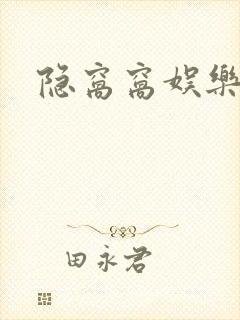 隐窝窝娱樂
田永君